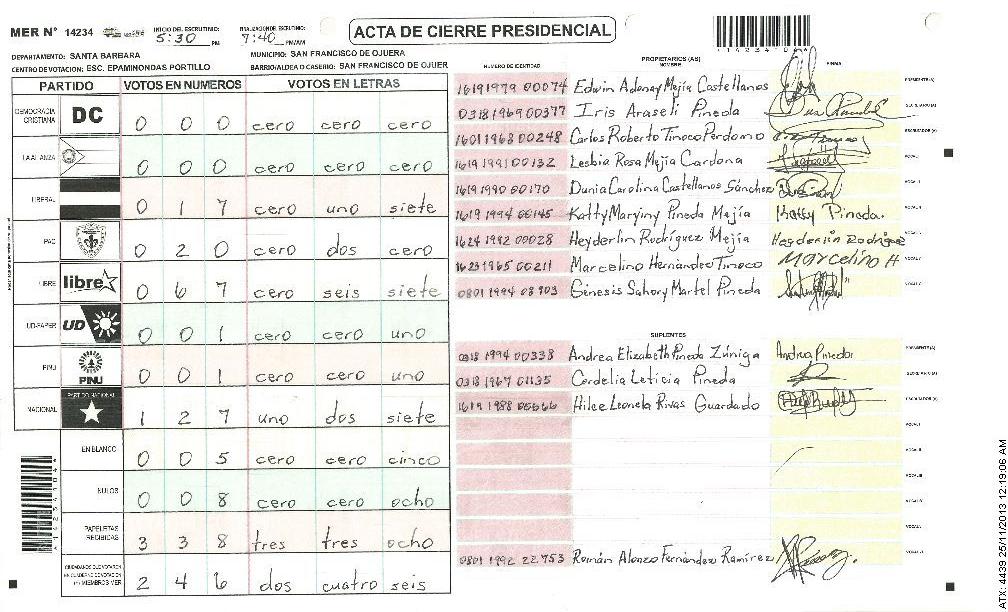 MER N° 14234 INICIO DEL ESCRUTINIO: 5:30 PM FINALIZACION DEL ESCRUTINIO: 7:40 PM/AM
ACTA DE CIERRE PRESIDENCIAL
DEPARTAMENTO: SANTA BARBARA MUNICIPIO: SAN FRANCISCO DE OJUERA
CENTRO DE VOTACION: ESC. EPAMINONDAS PORTILLO BARRIO/ALDEA O CASERIO: SAN FRANCISCO DE OJUER
PARTIDO VOTOS EN NUMEROS VOTOS EN LETRAS
DEMOCRACIA CRISTIANA DC 0 0 0 cero cero cero
LA ALIANZA 0 0 0 cero cero cero
LIBERAL 0 1 7 cero uno siete
PAC 0 2 0 cero dos cero
LIBRE libre 0 6 7 cero seis siete
UD-FAPER UD 0 0 1 cero cero uno
PINU PINU 0 0 1 cero cero uno
NACIONAL PARTIDO NACIONAL 1 2 7 uno dos siete
EN BLANCO 0 0 5 cero cero cinco
NULOS 0 0 8 cero cero ocho
PAPELETAS RECIBIDAS 3 3 8 tres tres ocho
CIUDADANOS QUE VOTARON EN CUADERNO DE VOTACION (+) MIEMBROS MER 2 4 6 dos cuatro seis
PROPIETARIOS (AS)
NUMERO DE IDENTIDAD NOMBRE FIRMAS
1619 1979 00074 Edwin Adonay Mejía Castellanos PRESIDENTE(A)
0318 1969 00377 Iris Araseli Pineda SECRETARIO(A)
1601 1968 00248 Carlos Roberto Tinoco Perdomo ESCRUTADOR (A)
1619 1991 00132 Lesbia Rosa Mejía Cardona VOCAL I
1619 1990 00170 Dunia Carolina Castellanos Sánchez
1619 1994 00145 Katty Maryiny Pineda Mejía Katty Pineda.
1624 1992 00028 Heyderlin Rodríguez Mejía Heyderlin Rodríguez
1623 1965 00211 Marcelino Hernández Tinoco Marcelino H
0801 1994 08903 Génesis Sahory Martel Pineda
SUPLENTES
0318 1994 00338 Andrea Elizabeth Pineda Zúniga Andrea Pineda PRESIDENTE(A)
0318 1967 01135 Cordelia Leticia Pineda SECRETARIO(A)
1619 1988 Hilce Leonela Rivas Guardado ESCRUTADOR (A)
0801 1992 22753 Román Alonzo Fernández Ramírez
ATX: 4439 25/11/2013 12:19:06 AM